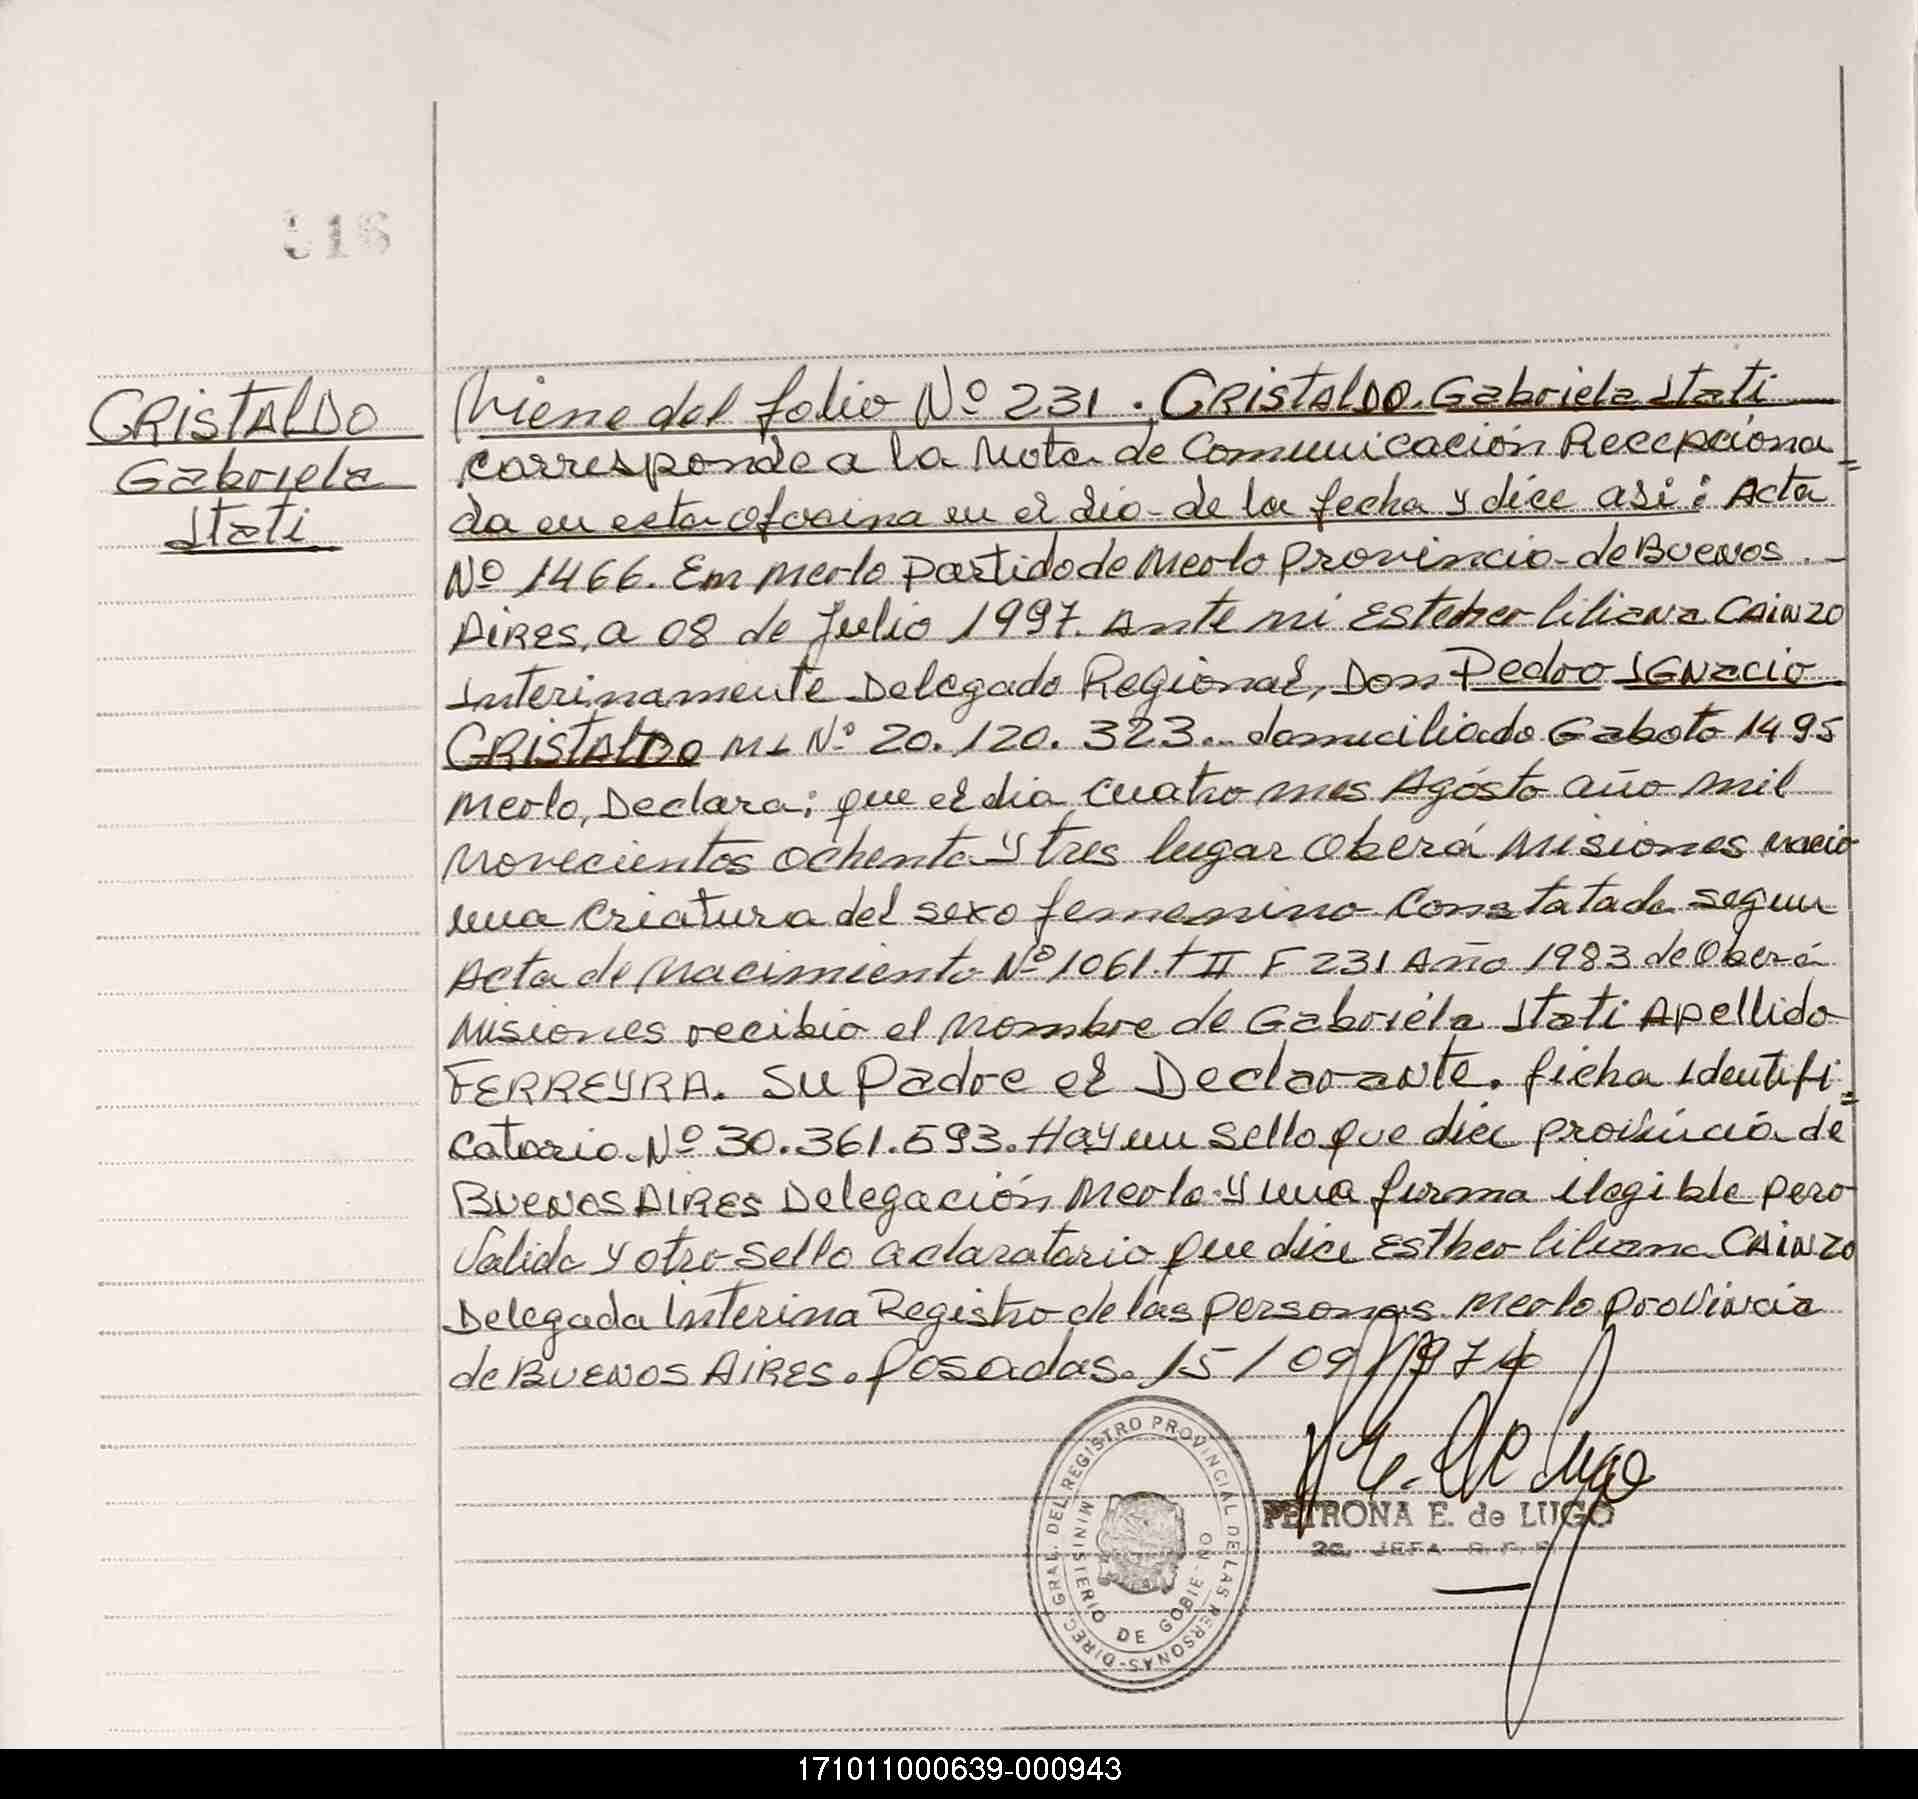 316
CRISTALDO
Gabriela
Itati
Viene del folio Nº 231. CRISTALDO. Gabriela Itati
corresponde a la Nota de Comunicación Recepciona=
da en esta oficina en el dia de la fecha y dice asi: Acta
Nº 1466. En Merlo Partido de Merlo Provincia de BUENOS
AIRES, a 08 de Julio 1997. Ante mi Esteher liliana CAINZO
Interinamente Delegado Regional, Don Pedro IGNACIO
CRISTALDO MI Nº 20.120.323.. domiciliado Gaboto 1495
Merlo, Declara; que el dia cuatro mes Agósto año mil
Novecientos ochenta y tres lugar Oberá Misiones nacio
una criatura del sexo femenino Constatada segun
Acta de Nacimiento Nº 1061. t II F 231 Año 1983 de Oberá
Misiones recibió el nombre de Gabriéla Itati Apellido
FERREYRA. Su Padre el Declarante. ficha identifi=
catoria Nº 30.361.593. Hay un sello que dice provincia de
BUENOS AIRES Delegación Merlo y una firma ilegible pero
Valida y otro sello aclaratorio que dice Esther liliana CAINZO
Delegada Interina Registro de las personas Merlo Provincia
de BUENOS AIRES. Posadas. 15/09/1974
DIREC. GRAL. DEL REGISTRO PROVINCIAL DE LAS PERSONAS-
MINISTERIO DE GOBIERNO
PETRONA E. de LUGO
2a. JEFA R. P. P.
171011000639-000943